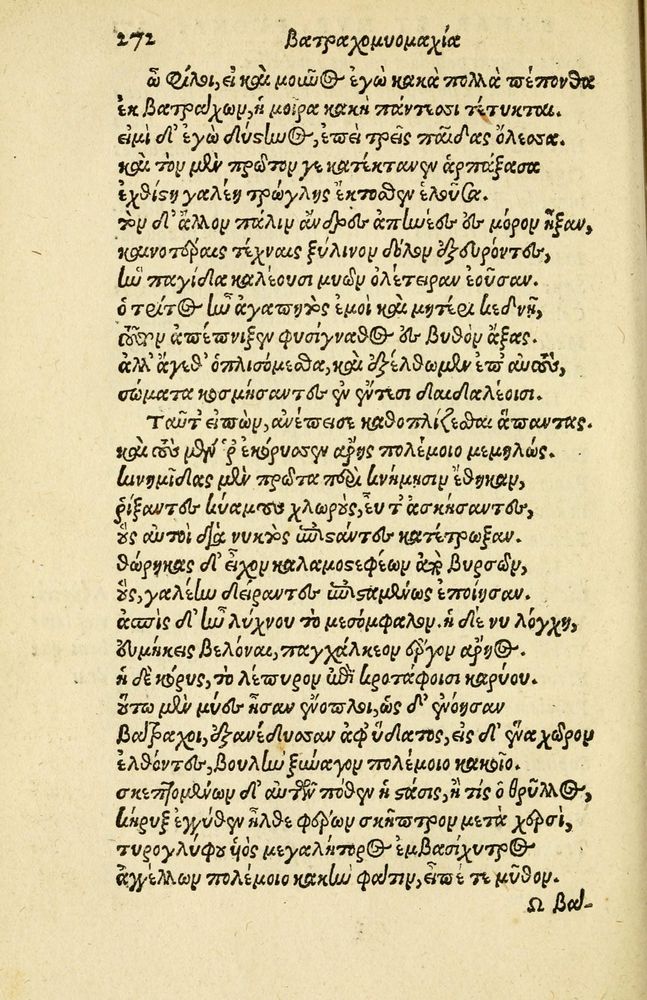 272 Βατραχομυομαχία
ὦ φίλοι, εἰ καὶ μοιῶος ἐγὼ κακὰ πολλὰ πέπονθα
ἐκ βατράχων, ἡ μοῖρα κακὴ πάντεσι τέτυκται.
εἰμὶ δ' ἐγὼ δύστηνος, ἐπεὶ τρεῖς παῖδας ὄλεσσα.
καὶ τὸν μὲν πρῶτον γε κατέκτανεν ἁρπάξασα
ἐχθίστη γαλέη τρώγλης ἔκτοσθεν ἑλοῦσα.
τὸν δ' ἄλλον πάλιν ἄνδρες ἀπηνέες ἐς μόρον ἦξαν,
καινοτέραις τέχναις ξύλινον δόλον ἐξευρόντες,
ἣν παγίδα καλέουσι μυῶν ὀλέτειραν ἐοῦσαν.
ὁ τρίτος ἦν ἀγαπητὸς ἐμοὶ καὶ μητέρι κεδνῇ,
τοῦτον ἀπέπνιξεν φυσίγναθος ἐς βυθὸν ἄξας.
ἀλλ' ἄγεθ' ὁπλισόμεσθα, καὶ ἐξέλθωμεν ἐπ' αὐτοὺς,
σώματα κοσμήσαντες ἐν ἔντεσι δαιδαλέοισι.
Ταῦτ' εἰπὼν, ἀνέπεισε καθοπλίζεσθαι ἅπαντας.
καὶ τοὺς μέν ῥ' ἐκόρυσσεν ἄρης πολέμοιο μεμηλώς.
κνημῖδας μὲν πρῶτα περὶ κνήμησιν ἔθηκαν,
ῥίξαντες κυάμους χλωροὺς, εὖ τ' ἀσκήσαντες,
οὓς αὐτοὶ διὰ νυκτὸς ἐπιστάντες κατέτρωξαν.
θώρηκας δ' εἶχον καλαμοστεφέων ἀπὸ βυρσῶν,
οὓς, γαλέην δείραντες ἐπισταμένως ἐποίησαν.
ἀσπὶς δ' ἦν λύχνου τὸ μεσόμφαλον. ἡ δέ νυ λόγχη,
εὐμήκεις βελόναι, παγχάλκεον ἔργον ἄρηος.
ἡ δὲ κόρυς, τὸ λέπυρον ἐπὶ κροτάφοισι καρύου.
οὕτω μὲν μύες ἦσαν ἔνοπλοι, ὡς δ' ἐνόησαν
βάτραχοι, ἐξανέδυσαν ἀφ' ὕδατος, εἰς δ' ἕνα χῶρον
ἐλθόντες, βουλὴν ξύναγον πολέμοιο κακοῖο.
σκεπτομένων δ' αὐτῶν πόθεν ἡ στάσις, ἢ τίς ὁ θρῦλλος,
κήρυξ ἐγγύθεν ἦλθε φέρων σκῆπτρον μετὰ χερσὶ,
τυρογλύφου υἱὸς μεγαλήτορος ἐμβασίχυτρος
ἀγγέλλων πολέμοιο κακὴν φάτιν, εἶπέ τε μῦθον.
Ω βά-